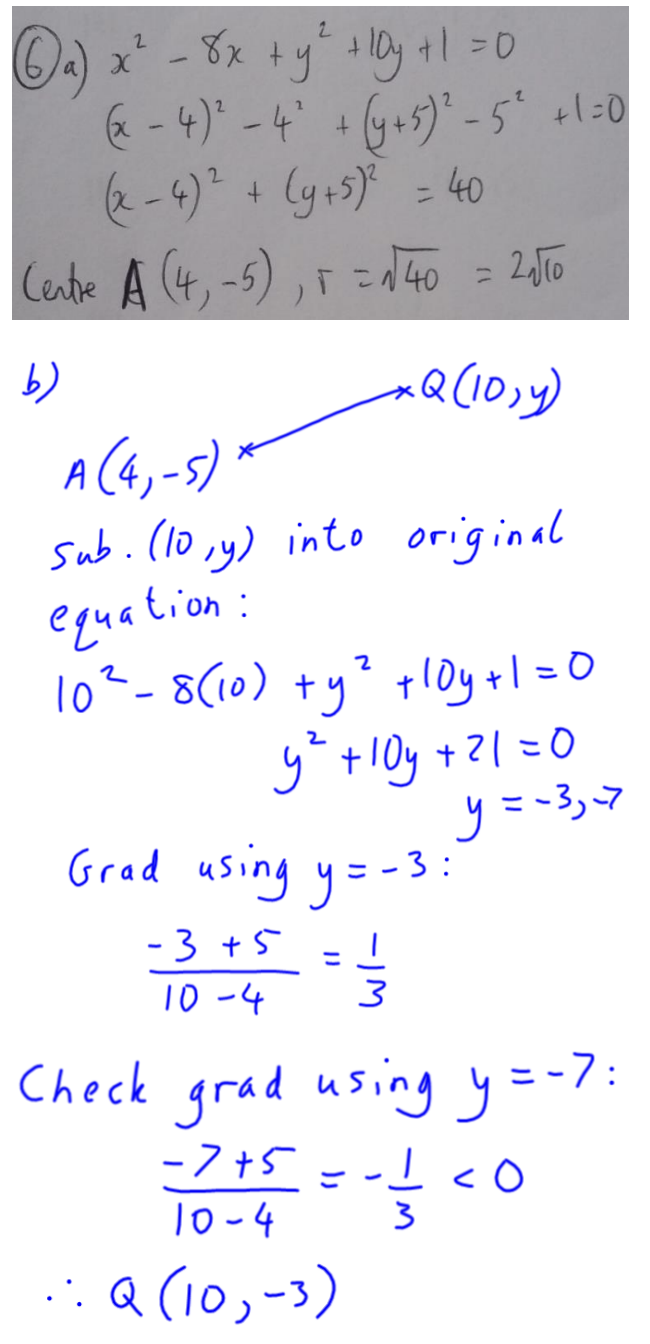 ⑥ a) x² - 8x + y² + 10y + 1 = 0
(x - 4)² - 4² + (y+5)² - 5² + 1 = 0
(x - 4)² + (y+5)² = 40
Centre A (4, -5), r = √40 = 2√10
b)
Q(10, y)
A(4, -5)
sub. (10, y) into original
equation:
10² - 8(10) + y² + 10y + 1 = 0
y² + 10y + 21 = 0
y = -3, -7
Grad using y = -3:
(-3 + 5)/(10 - 4) = 1/3
Check grad using y = -7:
(-7 + 5)/(10 - 4) = -1/3 < 0
∴ Q (10, -3)